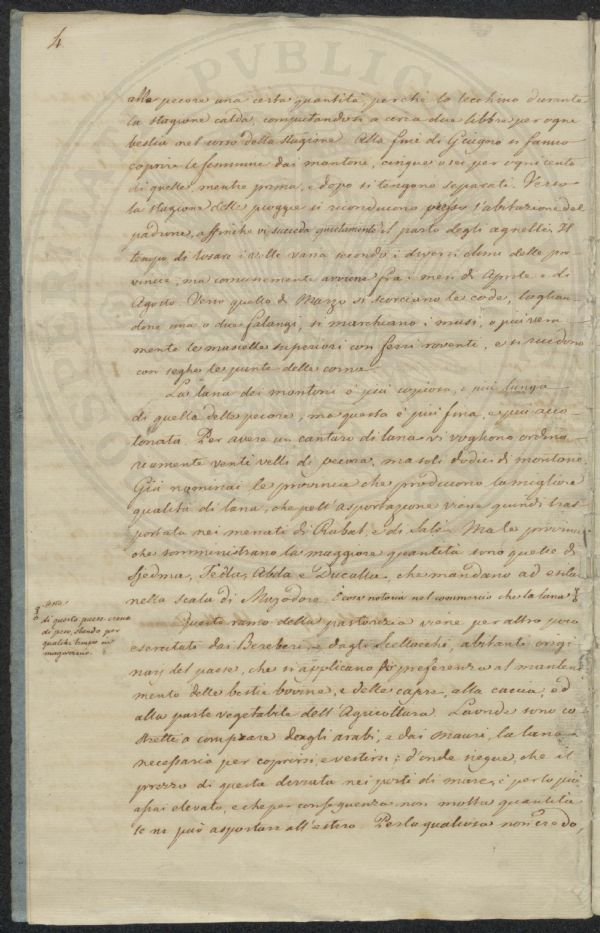 4.
alle pecore una certa quantità, perchè lo lecchino durante
la stagione calda, computandosi a circa due libbre per ogni
bestia nel corso della stagione. Alla fine di Giugno si fanno
coprire le femmine dai montoni, cinque o sei per ogni cento
di quelle, mentre prima, e dopo si tengono separati. Verso
la stagione delle piogge si riconducono presso l'abitazione del
padrone, affinchè vi succeda quietamente il parto degli agnelli. Il
tempo di tosare i velli varia secondo i diversi climi delle pro-
vincie, ma comunemente avviene fra i mesi di Aprile e di
Agosto. Verso quello di Marzo si scorciano le code, taglian-
done una o due falangi, si marchiano i musi, o più vera-
mente le mascelle superiori con ferri roventi, e si recidono
con seghe le punte delle corna.
La lana dei montoni è più copiosa, e più lunga
di quella delle pecore, ma questa è più fina, e più acco-
tonata. Per avere un cantaro di lana vi vogliono ordina-
riamente venti velli di pecora, ma soli dodici di montone.
Già nominai le provincie che producono la migliore
qualità di lana, che nell'asportazione viene quindi tras-
portata nei mercati di Rabat, e di Salé. Ma le provincie
che somministrano la maggiore quantità sono quelle di
Sjedma, Tedla, Abda e Ducalla, che mandano ad
nella scala di Mogodore. È cosa notoria nel commercio che la lana
di questo paese
di peso, stando per
qualche tempo in
magazzino.
Questo ramo della pastorizia viene per altro poco
esercitato dai Bereberi, e dagli Scellocchi, abitanti origi-
narj del paese, che si applicano di preferenza al manteni-
mento delle bestie bovine, e delle capre, alla caccia, ed
alla parte vegetabile dell'Agricoltura. Laonde sono co-
stretti a comprare dagli arabi, e dai mauri, la lana
necessaria per coprirsi, e vestirsi; d'onde siegue, che il
prezzo di questa derrata nei porti di mare, è per lo più
assai elevato, e che per conseguenza non molta quantità
se ne può asportare all'estero. Per la qual cosa non credo,